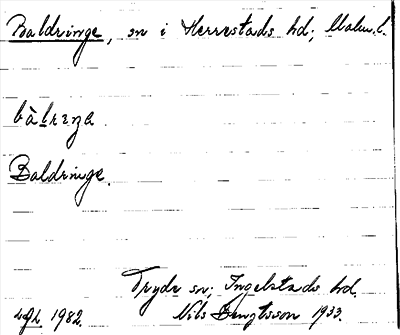 Baldringe, sn i Herrestads hd; Malm.l.
Baldringe.
Tryde sn; Ingelstads hd.
1982. Nils Bengtsson 1933.